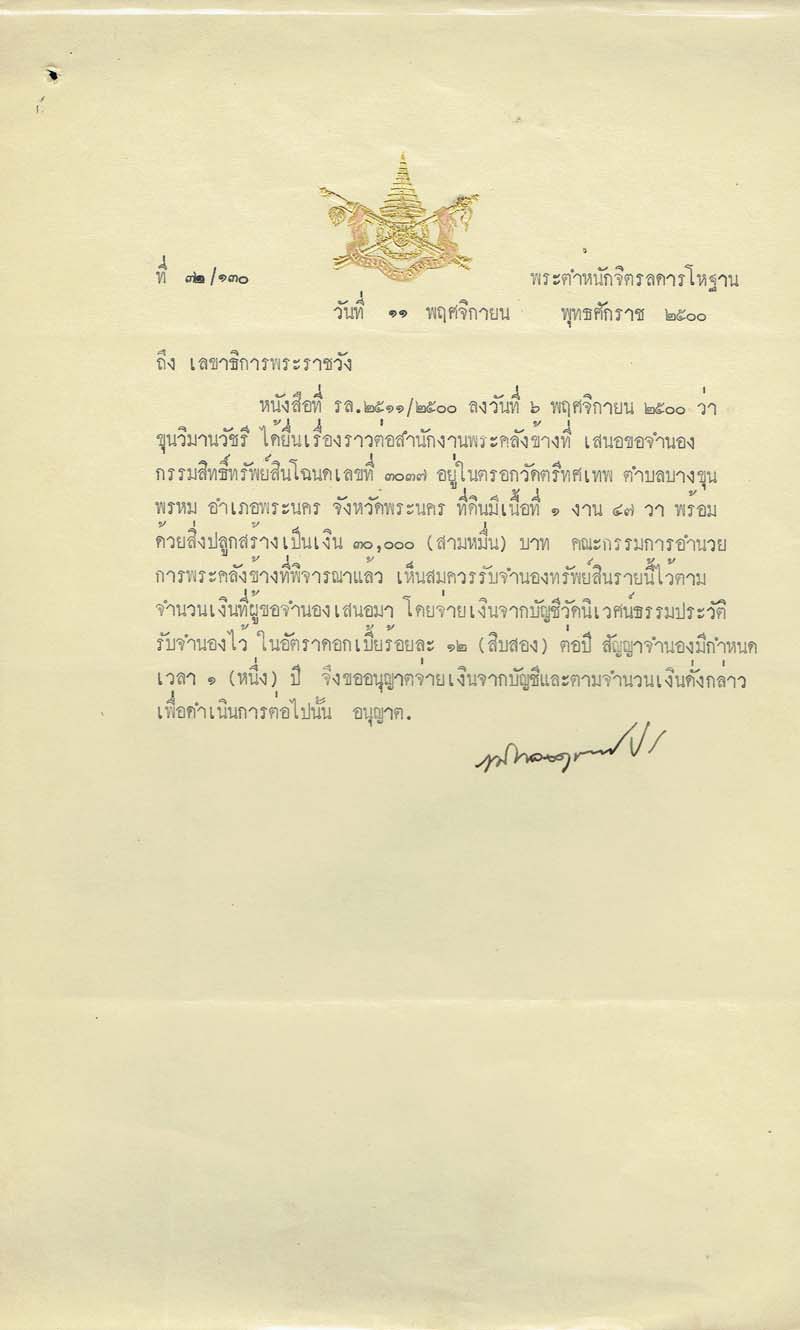 ที่ ๓๒/๑๓๐
พระตำหนักจิตรลดารโหฐาน
วันที่ ๑๑ พฤศจิกายน พุทธศักราช ๒๕๐๐
ถึง เลขาธิการพระราชวัง
หนังสือที่ รล.๒๕๑๑/๒๕๐๐ ลงวันที่ ๖ พฤศจิกายน ๒๕๐๐ ว่า
ขุนวิมานวัชรี ได้ยื่นเรื่องราวต่อสำนักงานพระคลังข้างที่ เสนอขอจำนอง
กรรมสิทธิ์ทรัพย์สินโฉนดเลขที่ ๓๐๓๗ อยู่ในตรอกวัดตรีทศเทพ ตำบลบางขุน
พรหม อำเภอพระนคร จังหวัดพระนคร ที่ดินมีเนื้อที่ ๑ งาน ๔๗ วา พร้อม
ด้วยสิ่งปลูกสร้างเป็นเงิน ๓๐,๐๐๐ (สามหมื่น) บาท คณะกรรมการอำนวย
การพระคลังข้างที่พิจารณาแล้ว เห็นสมควรรับจำนองทรัพย์สินรายนี้ไว้ตาม
จำนวนเงินที่ผู้ขอจำนองเสนอมา โดยจ่ายเงินจากบัญชีวัดนิเวศน์ธรรมประวัติ
รับจำนองไว้ ในอัตราดอกเบี้ยร้อยละ ๑๒ (สิบสอง) ต่อปี สัญญาจำนองมีกำหนด
เวลา ๑ (หนึ่ง) ปี จึงขออนุญาตจ่ายเงินจากบัญชีและตามจำนวนเงินดั่งกล่าว
เพื่อดำเนินการต่อไปนั้น อนุญาต.